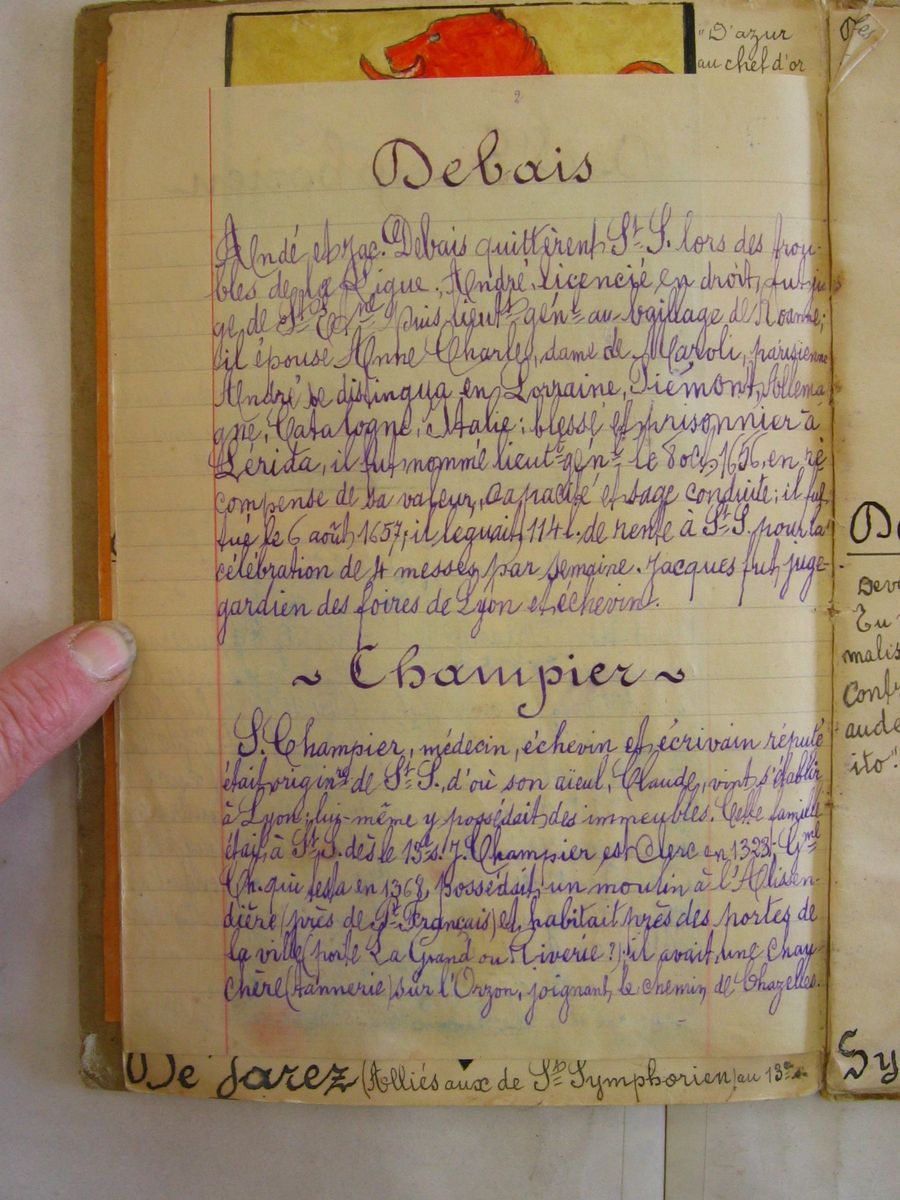 "D'azur
au chef d'or
2
Debais
André et Jac. Debais quittèrent St S. lors des trou-
bles de la Ligue. André, licencié en droit, fut ju-
ge de St puis lieutt génl au bailliage de Roanne;
il épouse Anne Charles, dame de Maroli, parisienne
André se distingua en Lorraine, Piémont, Allema-
gne, Catalogne, Italie; blessé et prisonnier à
Lérida, il fut nommé lieutt génl le 8 oct 1656, en ré-
compense de sa valeur, capacité et sage conduite; il fut
tué le 6 août 1657; il léguait 114 l. de rente à St S. pour la
célébration de 4 messes par semaine. Jacques fut juge-
gardien des foires de Lyon et échevin.
~ Champier ~
S. Champier, médecin, échevin et écrivain réputé
était originre de St S., d'où son aïeul, Claude, vint s'établir
à Lyon; lui-même y possédait des immeubles. Cette famille
était à St S. dès le 13e s. J. Champier est clerc en 1323. Gme
Ch. qui testa en 1368, possédait un moulin à l'Alisen-
dière (près de St François) et habitait près des portes de
la ville (porte La Grand ou Riverie?); il avait une chau-
chère (tannerie) sur l'Orzon, joignant le chemin de Chazelles.
De Jarez (Alliés aux de St Symphorien) au 13e s.
Deve
malis
Conf
aude
ito"
Sy